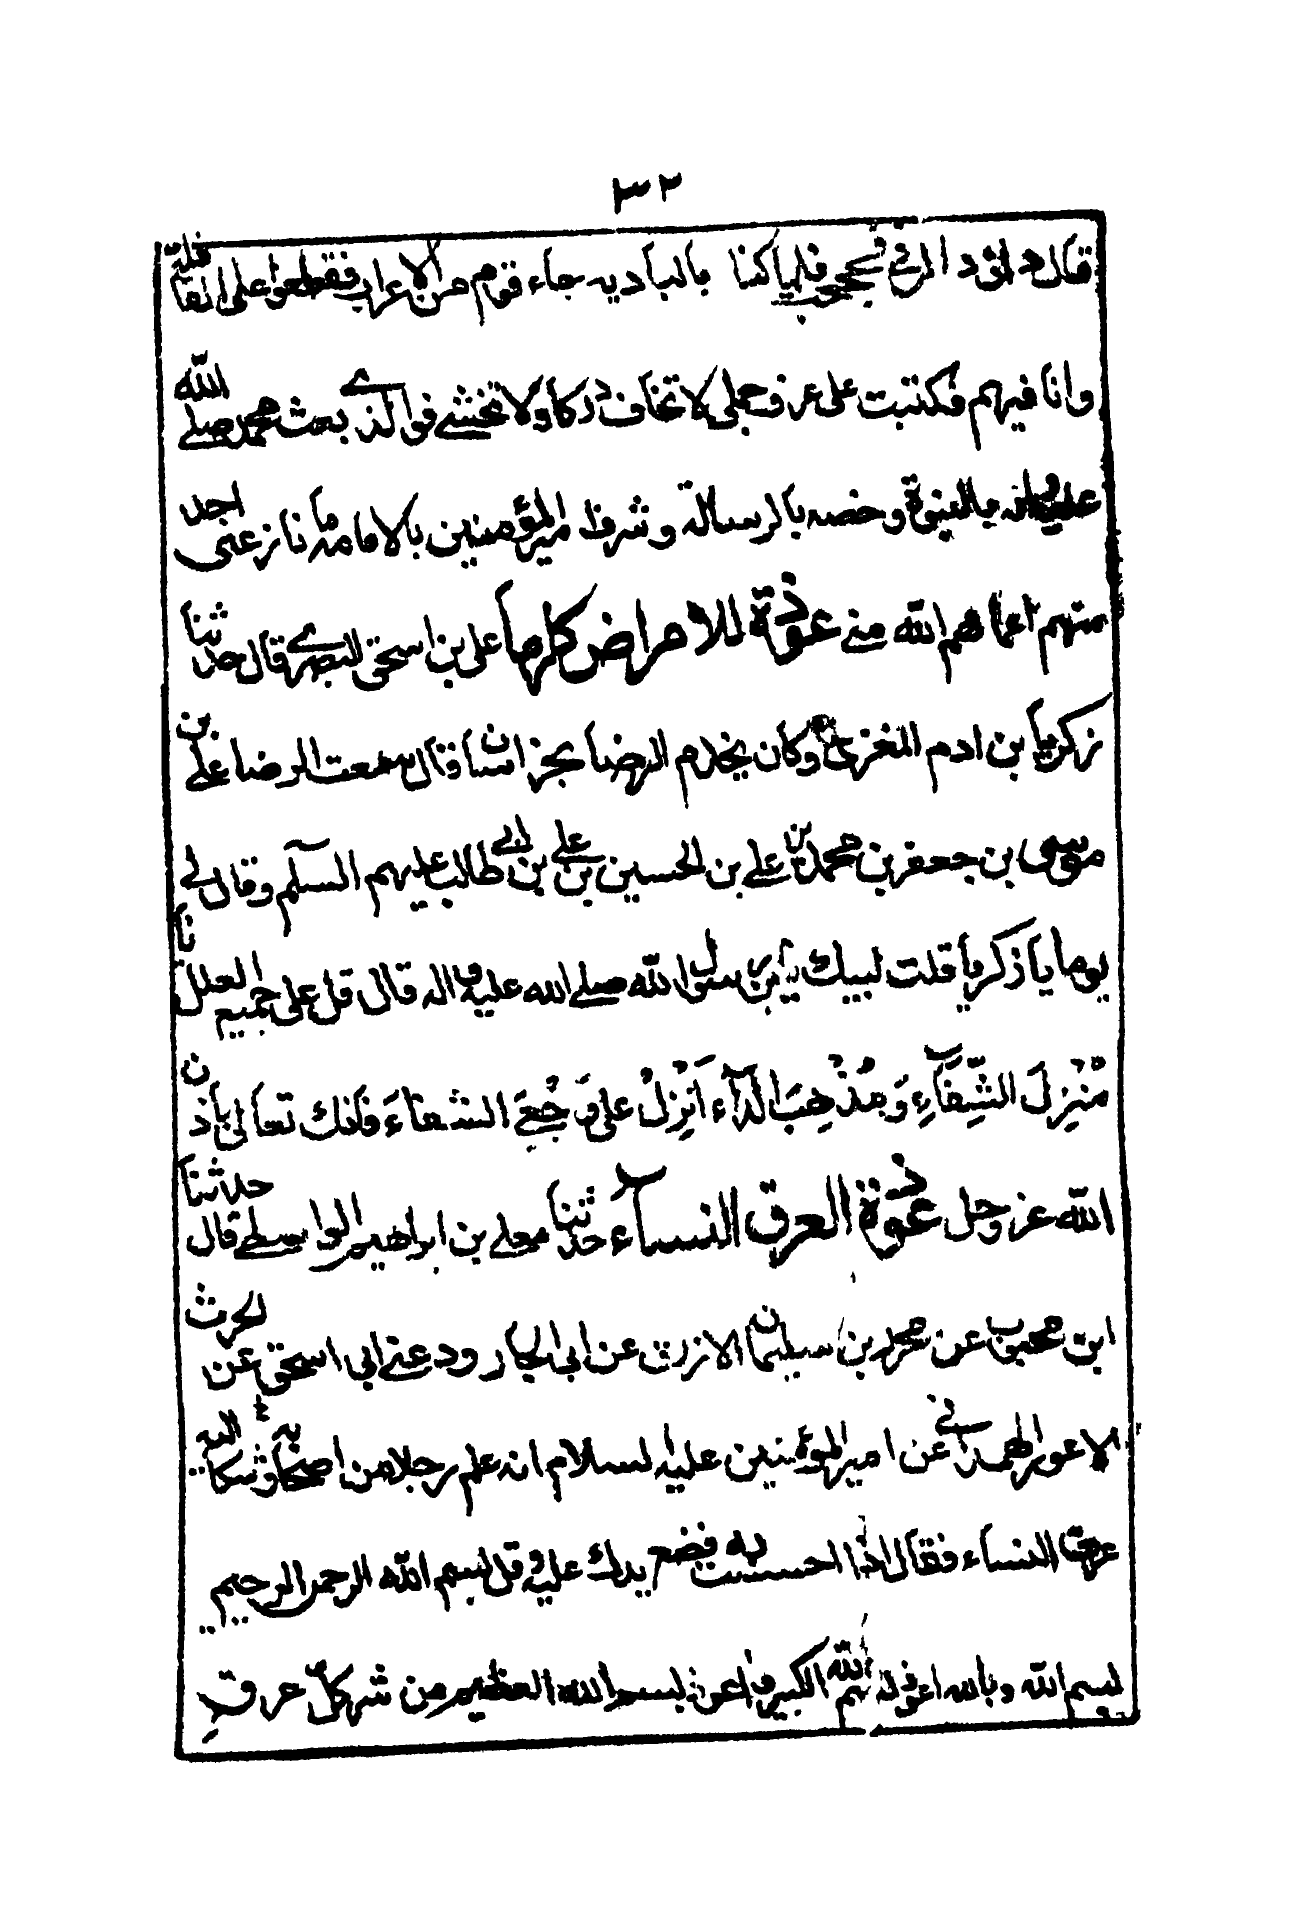 ٣٢
قال داود الرقي فحججت فلما كنا بالبادية جاء قوم من الاعراب فقطعوا على القافلة
وانا فيهم فكتبت على عرف جملى لا تخاف دركا ولا تخشى فو الذى بعث محمد صلى الله
عليه واله بالنبوة وخصه بالرسالة وشرف امير المؤمنين بالامامة ما نازعنى احد
منهم اعماهم الله منى عوذة للامراض كلها على بن اسحق البصرى قال حدثنا
زكريا بن ادم المقرى وكان يخدم الرضا بخراسان قال سمعت الرضا على بن
موسى بن جعفر بن محمد بن على بن الحسين بن على بن ابى طالب عليهم السلم وقال لى
يوما يا زكريا قلت لبيك يا بن رسول الله صلى الله عليه واله قال قل على جميع العلل يا
مُنْزِلَ الشِّفَآءِ وَمُذْهِبَ الدآء اَنْزِلْ على وَجَعِىَ الشفاءَ فانك تعافى باذن
الله عز وجل عوذة العرق النسآء حدثنا معلى بن ابراهيم الواسطى قال حدثنا
ابن محبوب عن محمد بن سليمان الازرق عن ابى الجارود عن ابى اسحق عن الحرث
الاعور الهمدانى عن امير المؤمنين عليه السلام انه علم رجلا من اصحابه وشكا اليه
عرق النساء فقال اذا احسست به فضع يدك عليه وقل بسم الله الرحمن الرحيم
بسم الله وبالله اعوذ بسم الله الكبير واعوذ بسم الله العظيم من شر كل عرق